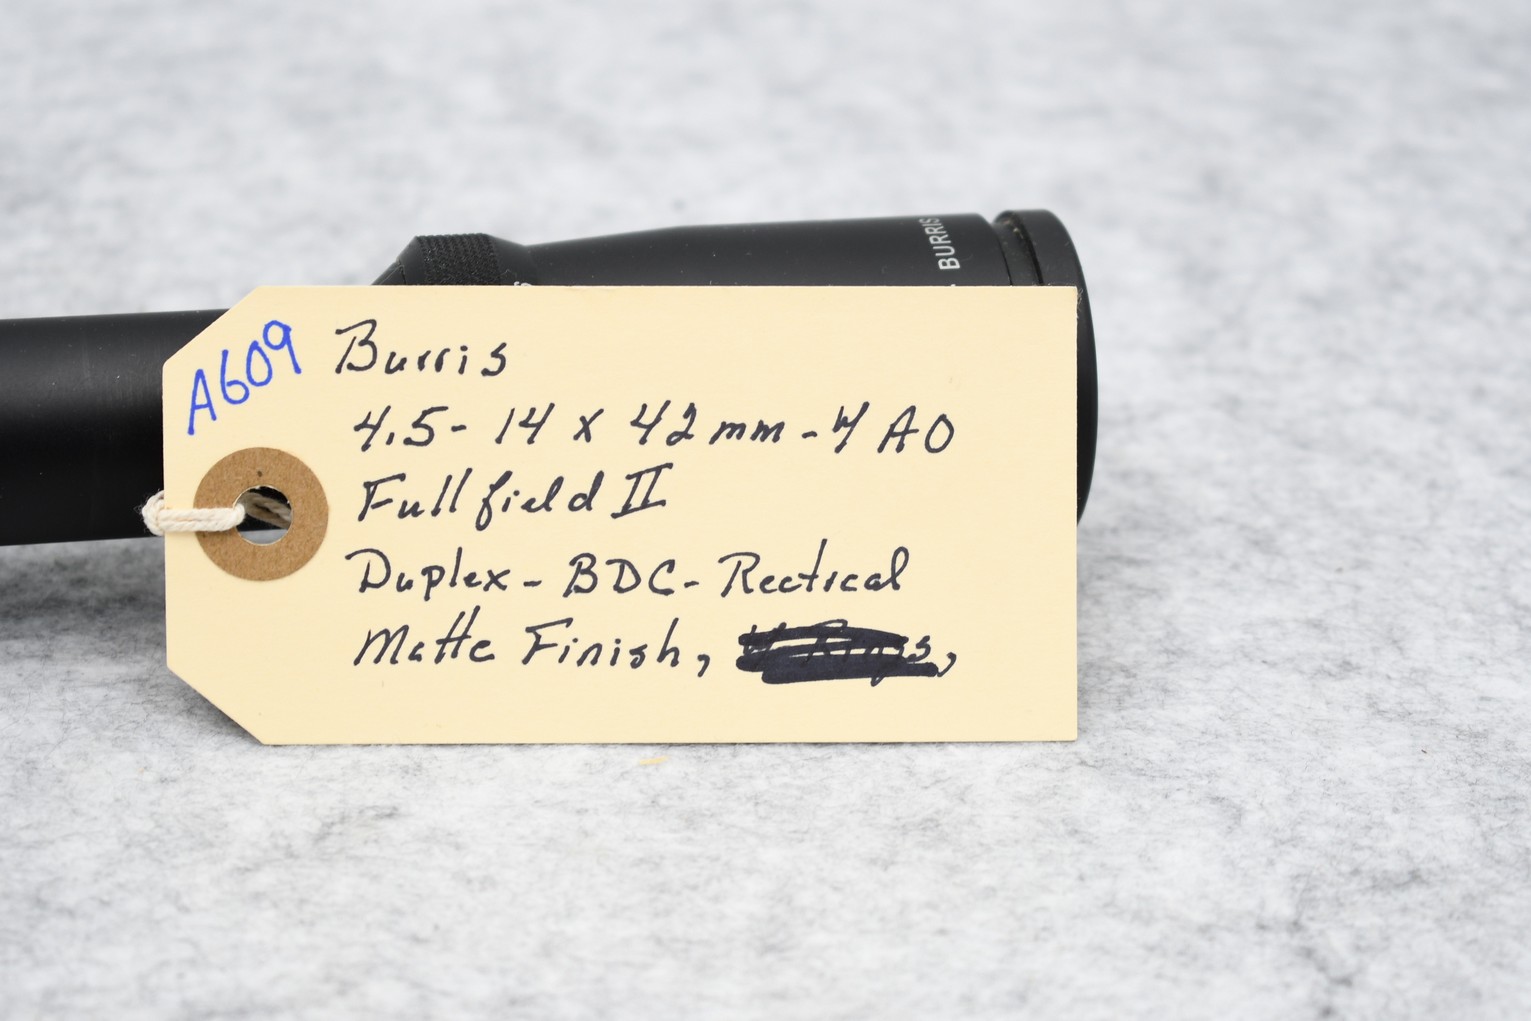 BURRIS
A609
Burris
4.5-14 x 42mm-W AO
Fullfield II
Duplex-BDC-Rectical
Matte Finish,